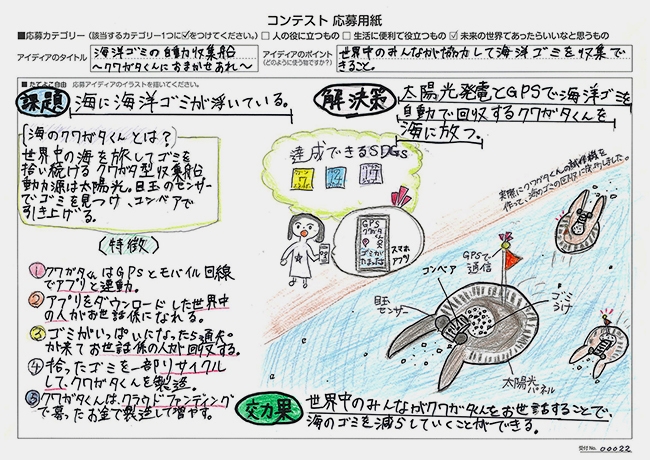 コンテスト 応募用紙
■応募カテゴリー（該当するカテゴリー1つに✓をつけてください。） □ 人の役に立つもの □ 生活に便利で役立つもの ☑ 未来の世界であったらいいなと思うもの
アイディアのタイトル
海洋ゴミの自動収集船
〜クワガタくんにおまかせあれ〜
アイディアのポイント
（どのように使う物ですか？）
世界中のみんなが協力して海洋ゴミを収集で
きること。
■ たてよこ自由 応募アイディアのイラストを描いてください。
課題
海に海洋ゴミが浮いている。
解決策
太陽光発電とGPSで海洋ゴミを
自動で回収するクワガタくんを
海に放つ。
海のクワガタくんとは？
世界中の海を旅してゴミを
拾い続けるクワガタ型収集船
動力源は太陽光。目玉のセンサー
でゴミを見つけ、コンベアで
引き上げる。
達成できるSDGs
7 14 17
実際にクワガタくんの試作機を
作って、海のゴミの回収に成功しました。
GPS
クワガタ
くん
ゴミが
スマホ
アプリ
（特徴）
① クワガタくんはGPSとモバイル回線
でアプリと連動。
② アプリをダウンロードした世界中
の人がお世話係になれる。
③ ゴミがいっぱいになったら通知
が来てお世話係の人が回収する。
④ 拾ったゴミを一部リサイクル
してクワガタくんを製造。
⑤ クワガタくんは、クラウドファンディング
で募ったお金で製造して増やす。
GPSで
通信
コンベア
目玉
センサー
ゴミ
うけ
太陽光
パネル
効果
世界中のみんながクワガタくんをお世話することで、
海のゴミを減らしていくことができる。
受付No. 00022